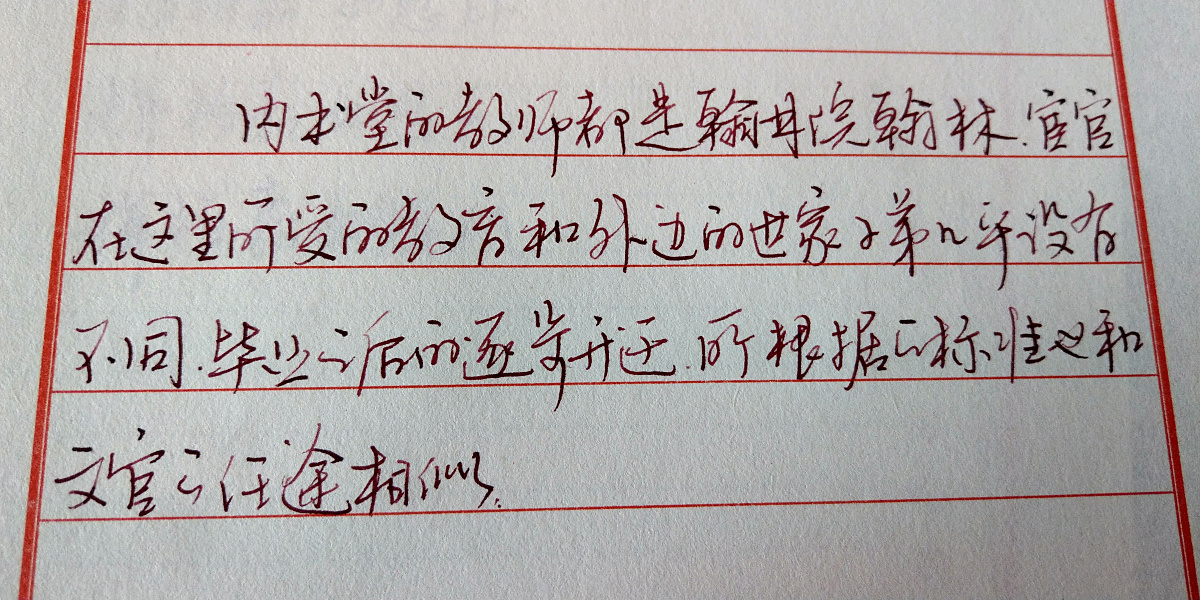 内书堂的教师都是翰林院翰林.宦官
在这里所受的教育和外边的世家子弟几乎没有
不同.毕业之后的逐步升迁.所根据之标准也和
文官之仕途相似.